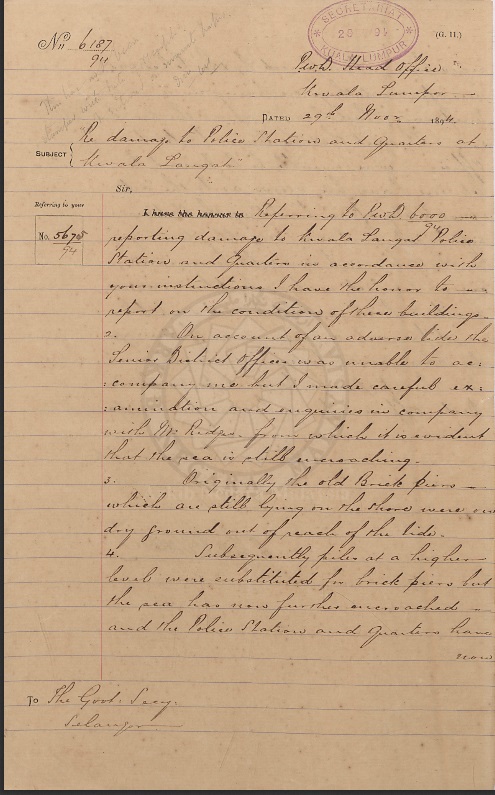 No 6187/94
SECRETARIAT
KUALA LUMPUR
(G. 11.)
P.W.D. Head Office
Kwala Lumpor
DATED 29th Novr 1894
SUBJECT { Re damage to Police Station and Quarters at
Kwala Langat"
Sir,
Referring to your
No. 5675/94
I have the honour to Referring to P.W.D. 6000/94
reporting damage to Kwala Langat Police
Station and Quarters in accordance with
your instructions I have the honor to
report on the condition of these buildings
2. On account of an adverse tide the
Senior District Officer was unable to ac:
:company me but I made careful ex:
:amination and enquiries in company
with Mr from which it is evident
that the sea is still encroaching.
3. Originally the old Brick piers
which are still lying on the shore were on
dry ground out of reach of the tide.
4. Subsequently piles at a higher
level were substituted for brick piers but
the sea has now further encroached
and the Police Station and Quarters have
now
To The Govt: Secy:
Selangor